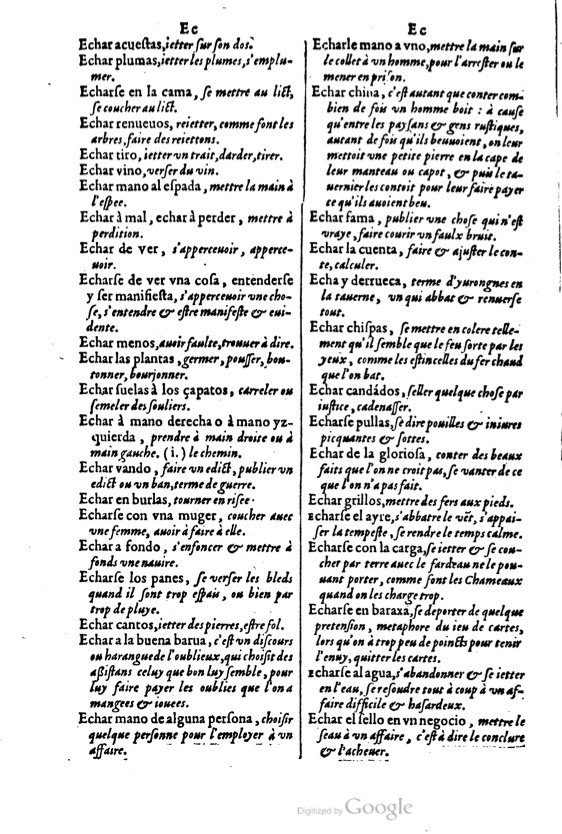 Ec
Echar acuestas, ietter sur son dos.
Echar plumas, ietter les plumes, s'emplu-
mer.
Echarse en la cama, se mettre au lict,
se coucher au lict.
Echar renueuos, reietter, comme font les
arbres, faire des reiettons.
Echar tiro, ietter vn trait, darder, tirer.
Echar vino, verser du vin.
Echar mano al espada, mettre la main à
l'espee.
Echar à mal, echar à perder, mettre à
perdition.
Echar de ver, s'apperceuoir, apperce-
uoir.
Echarse de ver vna cosa, entenderse
y ser manifiesta, s'apperceuoir vne cho-
se, s'entendre & estre manifeste & eui-
dente.
Echar menos, auoir faulte, trouuer à dire.
Echar las plantas, germer, pousser, bou-
tonner, bourjonner.
Echar suelas à los çapatos, carreler ou
semeler des souliers.
Echar à mano derecha o à mano yz-
quierda, prendre à main droite ou à
main gauche. (i.) le chemin.
Echar vando, faire vn edict, publier vn
edict ou vn ban, terme de guerre.
Echar en burlas, tourner en risee.
Echarse con vna muger, coucher auec
vne femme, auoir à faire à elle.
Echar a fondo, s'enfoncer & mettre à
fonds vne nauire.
Echarse los panes, se verser les bleds
quand il sont trop espais, ou bien par
trop de pluye.
Echar cantos, ietter des pierres, estre fol.
Echar a la buena barua, c'est vn discours
ou harangue de l'oublieux, qui choisit des
assistans celuy que bon luy semble, pour
luy faire payer les oublies que l'on a
mangees & iouees.
Echar mano de alguna persona, choisir
quelque personne pour l'employer à vn
affaire.
Ec
Echarle mano a vno, mettre la main sur
le collet à vn homme, pour l'arrester ou le
mener en prison.
Echar china, c'est autant que conter com-
bien de fois vn homme boit : à cause
qu'entre les paysans & gens rustiques,
autant de fois qu'ils beuuoient, on leur
mettoit vne petite pierre en la cape de
leur manteau ou capot, & puis le ta-
uernier les contoit pour leur faire payer
ce qu'ils auoient beu.
Echar fama, publier vne chose qui n'est
vraye, faire courir vn faulx bruit.
Echar la cuenta, faire & ajuster le con-
te, calculer.
Echa y derrueca, terme d'yurongnes en
la tauerne, vn qui abbat & renuerse
tout.
Echar chispas, se mettre en colere telle-
ment qu'il semble que le feu sorte par les
yeux, comme les estincelles du fer chaud
que l'on bat.
Echar candádos, seller quelque chose par
iustice, cadenasser.
Echarse pullas, se dire pouilles & iniures
picquantes & sottes.
Echar de la gloriosa, conter des beaux
faits que l'on ne croit pas, se vanter de ce
que l'on n'a pas fait.
Echar grillos, mettre des fers aux pieds.
Echarse el ayre, s'abbatre le vẽt, s'appai-
ser la tempeste, se rendre le temps calme.
Echarse con la carga, se ietter & se cou-
cher par terre auec le fardeau ne le pou-
uant porter, comme font les Chameaux
quand on les charge trop.
Echarse en baraxa, se deporter de quelque
pretension, metaphore du ieu de cartes,
lors qu'on à trop peu de poincts pour tenir
l'enuy, quitter les cartes.
Echarse al agua, s'abandonner & se ietter
en l'eau, se resoudre tout à coup à vn af-
faire difficile & hasardeux.
Echar el sello en vn negocio, mettre le
seau à vn affaire, c'est à dire le conclure
& l'acheuer.
Digitized by Google